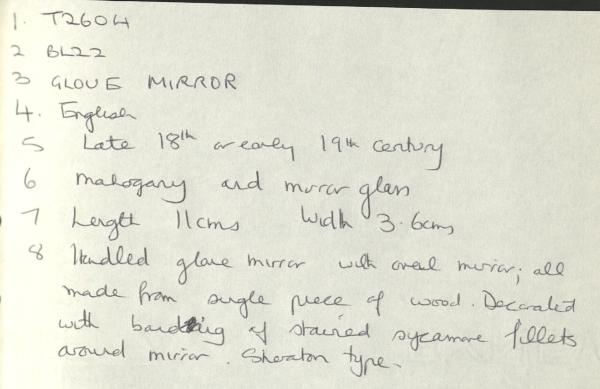 1. T2604
2 BL22
3 GLOVE MIRROR
4. English
5 Late 18th or early 19th century
6 Mahogany and mirror glass
7 Length 11cms Width 3.6cms
8 Handled glove mirror with oval mirror; all
made from single piece of wood. Decorated
with banding of stained sycamore fillets
around mirror. Sheraton type.